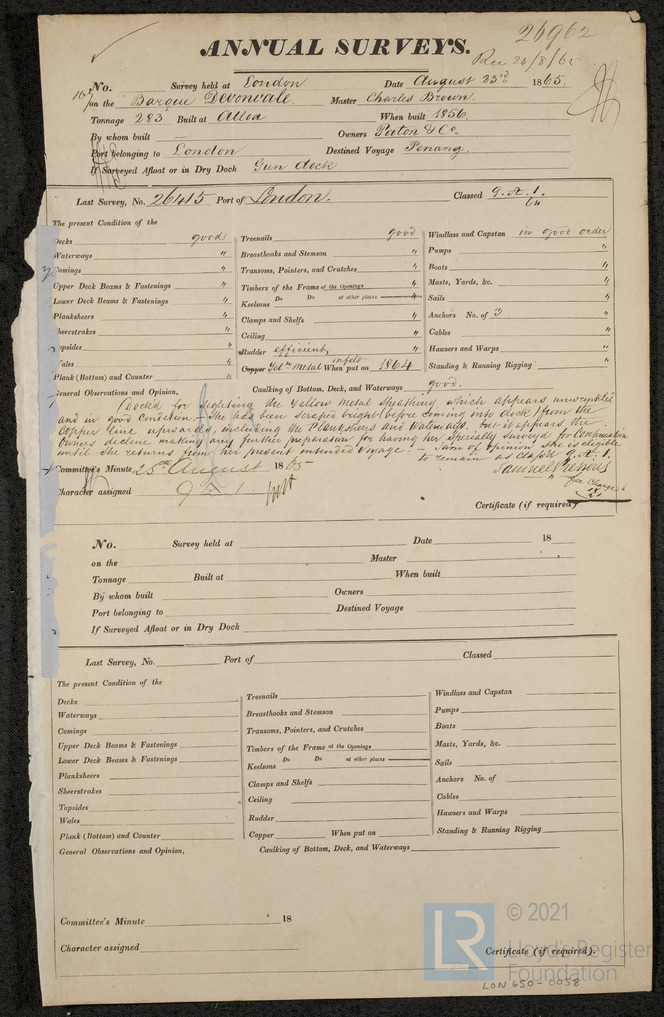 26962
ANNUAL SURVEYS.
Rec 24/8/65
No. Survey held at London Date August 23rd 1865.
on the Barque Devonvale. Master Charles Brown.
Tonnage 283 Built at Alloa When built 1856.
By whom built — Owners Paton & Co.
Port belonging to London Destined Voyage Penang.
If Surveyed Afloat or in Dry Dock Gun dock
Last Survey, No. 26415 Port of London. Classed 9.A.1.
64
The present Condition of the
Decks good
Waterways "
Comings "
Upper Deck Beams & Fastenings "
Lower Deck Beams & Fastenings "
Planksheers "
Sheerstrakes "
Topsides "
Wales "
Plank (Bottom) and Counter "
Treenails good
Breasthooks and Stemson "
Transoms, Pointers, and Crutches "
Timbers of the Frame at the Openings "
Keelsons Do Do at other places "
Clamps and Shelfs "
Ceiling "
Rudder efficient
Copper Yellw metal When put on 1864
Windlass and Capstan in good order
Pumps "
Boats "
Masts, Yards, &c. "
Sails "
Anchors No. of 3 "
Cables "
Hawsers and Warps "
Standing & Running Rigging "
General Observations and Opinion, Caulking of Bottom, Deck, and Waterways good.
Dock'd for sighting the Yellow metal Sheathing which appears unwrinkled
and in good Condition — She has been scraped bright before coming into dock from the
Copper line upwards, including the Plansheers and Waterways. but it appears the
Owners decline making any further preparation for having her Specially Survey'd for Continuation
until she returns from her present intended voyage. — I am of opinion she is eligible
to remain as class'd 9.A.1.
Committee's Minute 25th August 1865
Character assigned 9 A 1
Fee Charged
Certificate (if required)
No. Survey held at Date 18
on the Master
Tonnage Built at When built
By whom built Owners
Port belonging to Destined Voyage
If Surveyed Afloat or in Dry Dock
Last Survey, No. Port of Classed
The present Condition of the
Decks
Waterways
Comings
Upper Deck Beams & Fastenings
Lower Deck Beams & Fastenings
Planksheers
Sheerstrakes
Topsides
Wales
Plank (Bottom) and Counter
Treenails
Breasthooks and Stemson
Transoms, Pointers, and Crutches
Timbers of the Frame at the Openings
Keelsons Do Do at other places
Clamps and Shelfs
Ceiling
Rudder
Copper When put on
Windlass and Capstan
Pumps
Boats
Masts, Yards, &c.
Sails
Anchors No. of
Cables
Hawsers and Warps
Standing & Running Rigging
General Observations and Opinion, Caulking of Bottom, Deck, and Waterways
Committee's Minute 18
Character assigned
Certificate (if required).
LR
© 2021
Lloyd's Register
Foundation
LON 650-0058